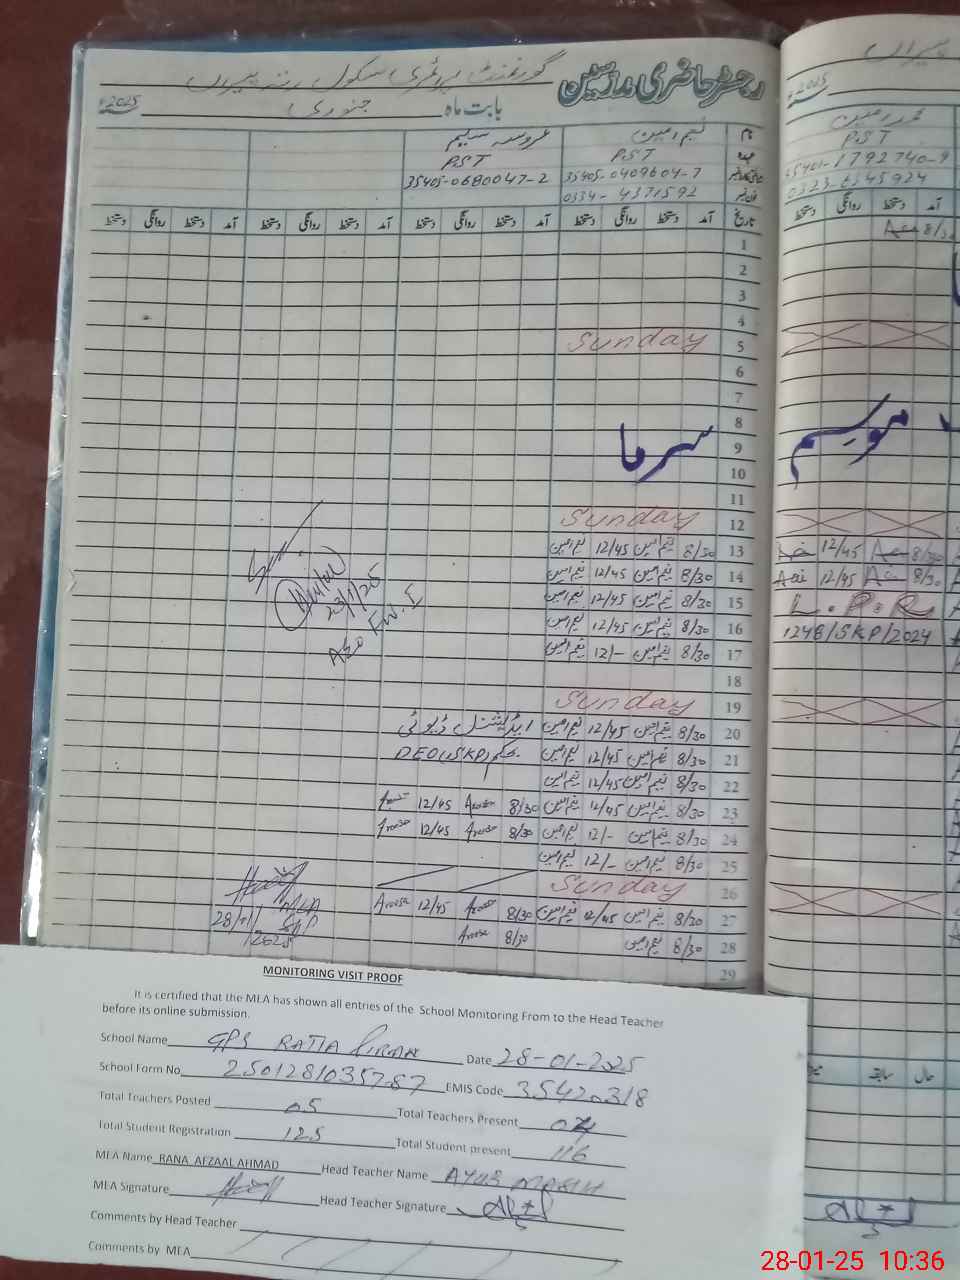 رجسٹر حاضری مدرسین گورنمنٹ پرائمری سکول رتہ پیراں
بابت ماہ جنوری 2025ء
نام نعیم امین عروسہ سلیم
عہدہ PST PST
35405-0409604-7 35405-0680047-2
فون نمبر 0334-4371592
تاریخ آمد دستخط روانگی دستخط آمد دستخط روانگی دستخط آمد دستخط روانگی دستخط آمد دستخط روانگی دستخط
1
2
3
4
5 Sunday
6
7
8
9 سرما
10
11
12 Sunday
13 8/30 نعیم امین 12/45 نعیم امین
14 8/30 نعیم امین 12/45 نعیم امین
15 8/30 نعیم امین 12/45 نعیم امین
16 8/30 نعیم امین 12/45 نعیم امین
17 8/30 نعیم امین 12/- نعیم امین
18
19 Sunday
20 8/30 نعیم امین 12/45 نعیم امین ایڈیشنل ڈیوٹی
21 8/30 نعیم امین 12/45 نعیم امین بحکم DEO(SKP)
22 8/30 نعیم امین 12/45 نعیم امین
23 8/30 نعیم امین 12/45 نعیم امین 8/30 Aroosa 12/45 Aroosa
24 8/30 نعیم امین 12/- نعیم امین 8/30 Aroosa 12/45 Aroosa
25 8/30 نعیم امین 12/- نعیم امین
26 Sunday
27 8/30 نعیم امین 12/45 نعیم امین 8/30 Aroosa 12/45 Aroosa
28 8/30 نعیم امین 8/30 Aroosa
29
23/1/25
AEO F.W.I
MEA
28/01/2025 SKP
پیراں
2025ء
محمد امین
PST
35401-1792740-9
0323-6345924
آمد دستخط روانگی دستخط
8/30
موسم
12/45 8/30
12/45 8/30
L.P.R
1248/SKP/2024
حال سابقہ
MONITORING VISIT PROOF
It is certified that the MEA has shown all entries of the School Monitoring From to the Head Teacher
before its online submission.
School Name GPS RATTA PIRAN Date 28-01-2025
School Form No 2501281035787 EMIS Code 35420318
Total Teachers Posted 05 Total Teachers Present 04
Total Student Registration 125 Total Student present 116
MEA Name RANA AFZAAL AHMAD Head Teacher Name AYUB MASIH
MEA Signature Head Teacher Signature
Comments by Head Teacher
Comments by MEA
28-01-25 10:36